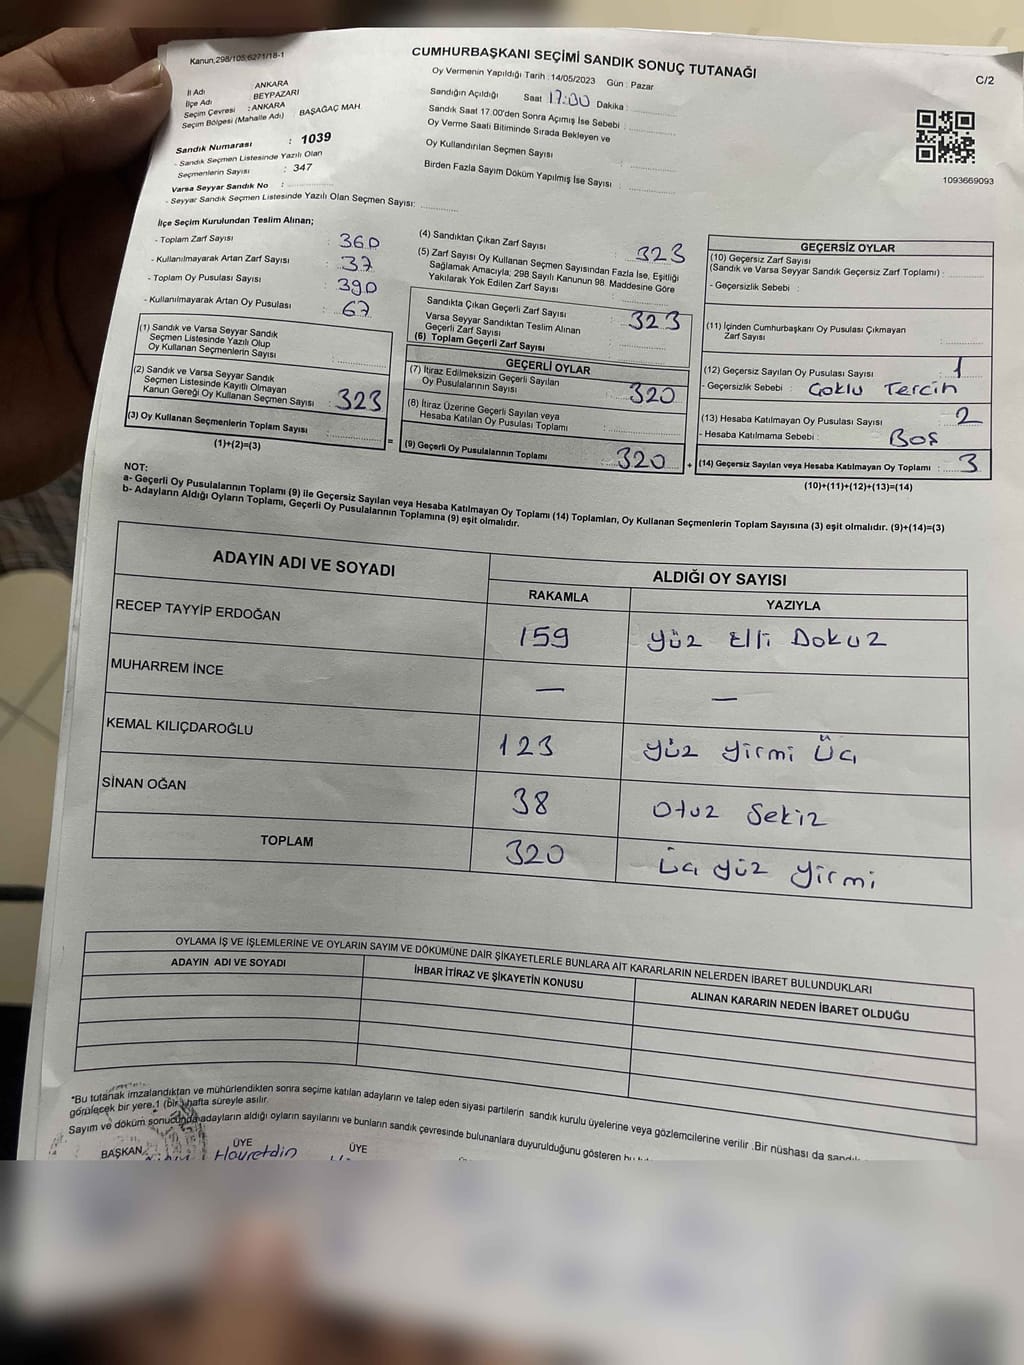 Kanun,298/105;6271/18-1
CUMHURBAŞKANI SEÇİMİ SANDIK SONUÇ TUTANAĞI
C/2
Oy Vermenin Yapıldığı Tarih : 14/05/2023 Gün : Pazar
İl Adı : ANKARA
İlçe Adı : BEYPAZARI
Seçim Çevresi : ANKARA
Seçim Bölgesi (Mahalle Adı) : BAŞAĞAÇ MAH.
Sandık Numarası : 1039
- Sandık Seçmen Listesinde Yazılı Olan
Seçmenlerin Sayısı : 347
Varsa Seyyar Sandık No :
- Seyyar Sandık Seçmen Listesinde Yazılı Olan Seçmen Sayısı:
Sandığın Açıldığı Saat 17:00 Dakika :
Sandık Saat 17.00'den Sonra Açımış İse Sebebi :
Oy Verme Saati Bitiminde Sırada Bekleyen ve
Oy Kullandırılan Seçmen Sayısı :
Birden Fazla Sayım Döküm Yapılmış İse Sayısı :
1093669093
İlçe Seçim Kurulundan Teslim Alınan;
- Toplam Zarf Sayısı : 360
- Kullanılmayarak Artan Zarf Sayısı : 37
- Toplam Oy Pusulası Sayısı : 390
- Kullanılmayarak Artan Oy Pusulası : 67
(1) Sandık ve Varsa Seyyar Sandık
Seçmen Listesinde Yazılı Olup
Oy Kullanan Seçmenlerin Sayısı :
(2) Sandık ve Varsa Seyyar Sandık
Seçmen Listesinde Kayıtlı Olmayan
Kanun Gereği Oy Kullanan Seçmen Sayısı : 323
(3) Oy Kullanan Seçmenlerin Toplam Sayısı :
(1)+(2)=(3)
(4) Sandıktan Çıkan Zarf Sayısı : 323
(5) Zarf Sayısı Oy Kullanan Seçmen Sayısından Fazla İse, Eşitliği
Sağlamak Amacıyla; 298 Sayılı Kanunun 98. Maddesine Göre
Yakılarak Yok Edilen Zarf Sayısı :
Sandıkta Çıkan Geçerli Zarf Sayısı : 323
Varsa Seyyar Sandıktan Teslim Alınan
Geçerli Zarf Sayısı :
(6) Toplam Geçerli Zarf Sayısı :
GEÇERLİ OYLAR
(7) İtiraz Edilmeksizin Geçerli Sayılan
Oy Pusulalarının Sayısı : 320
(8) İtiraz Üzerine Geçerli Sayılan veya
Hesaba Katılan Oy Pusulası Toplamı :
=
(9) Geçerli Oy Pusulalarının Toplamı : 320
+
GEÇERSİZ OYLAR
(10) Geçersiz Zarf Sayısı
(Sandık ve Varsa Seyyar Sandık Geçersiz Zarf Toplamı) :
- Geçersizlik Sebebi :
(11) İçinden Cumhurbaşkanı Oy Pusulası Çıkmayan
Zarf Sayısı :
(12) Geçersiz Sayılan Oy Pusulası Sayısı : 1
- Geçersizlik Sebebi : Çoklu Tercih
(13) Hesaba Katılmayan Oy Pusulası Sayısı : 2
- Hesaba Katılmama Sebebi : Boş
(14) Geçersiz Sayılan veya Hesaba Katılmayan Oy Toplamı : 3
(10)+(11)+(12)+(13)=(14)
NOT:
a- Geçerli Oy Pusulalarının Toplamı (9) ile Geçersiz Sayılan veya Hesaba Katılmayan Oy Toplamı (14) Toplamları, Oy Kullanan Seçmenlerin Toplam Sayısına (3) eşit olmalıdır. (9)+(14)=(3)
b- Adayların Aldığı Oyların Toplamı, Geçerli Oy Pusulalarının Toplamına (9) eşit olmalıdır.
ADAYIN ADI VE SOYADI
ALDIĞI OY SAYISI
RAKAMLA YAZIYLA
RECEP TAYYİP ERDOĞAN 159 Yüz Elli Dokuz
MUHARREM İNCE — —
KEMAL KILIÇDAROĞLU 123 Yüz Yirmi Üç
SİNAN OĞAN 38 Otuz Sekiz
TOPLAM 320 Üç Yüz Yirmi
OYLAMA İŞ VE İŞLEMLERİNE VE OYLARIN SAYIM VE DÖKÜMÜNE DAİR ŞİKAYETLERLE BUNLARA AİT KARARLARIN NELERDEN İBARET BULUNDUKLARI
ADAYIN ADI VE SOYADI İHBAR İTİRAZ VE ŞİKAYETİN KONUSU ALINAN KARARIN NEDEN İBARET OLDUĞU
*Bu tutanak imzalandıktan ve mühürlendikten sonra seçime katılan adayların ve talep eden siyasi partilerin sandık kurulu üyelerine veya gözlemcilerine verilir .Bir nüshası da
görülecek bir yere,1 (bir) hafta süreyle asılır.
Sayım ve döküm sonucunda adayların aldığı oyların sayılarını ve bunların sandık çevresinde bulunanlara duyurulduğunu gösteren
BAŞKAN ÜYE ÜYE
Hayrettin